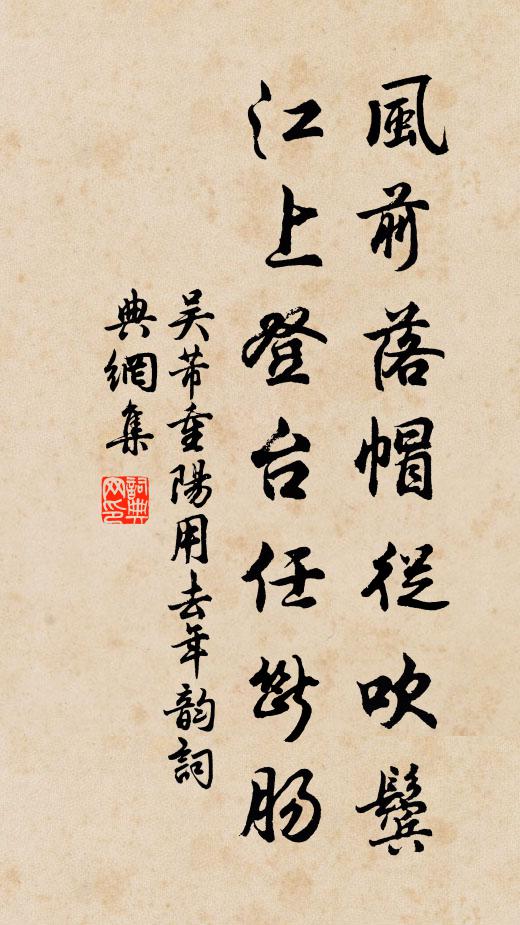 風前落帽從吹鬢
江上登台任斷腸
吴芾重陽用去年韵詞
典網集
詞典
网印